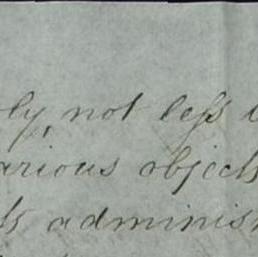 ly, not less
arious objects
administ